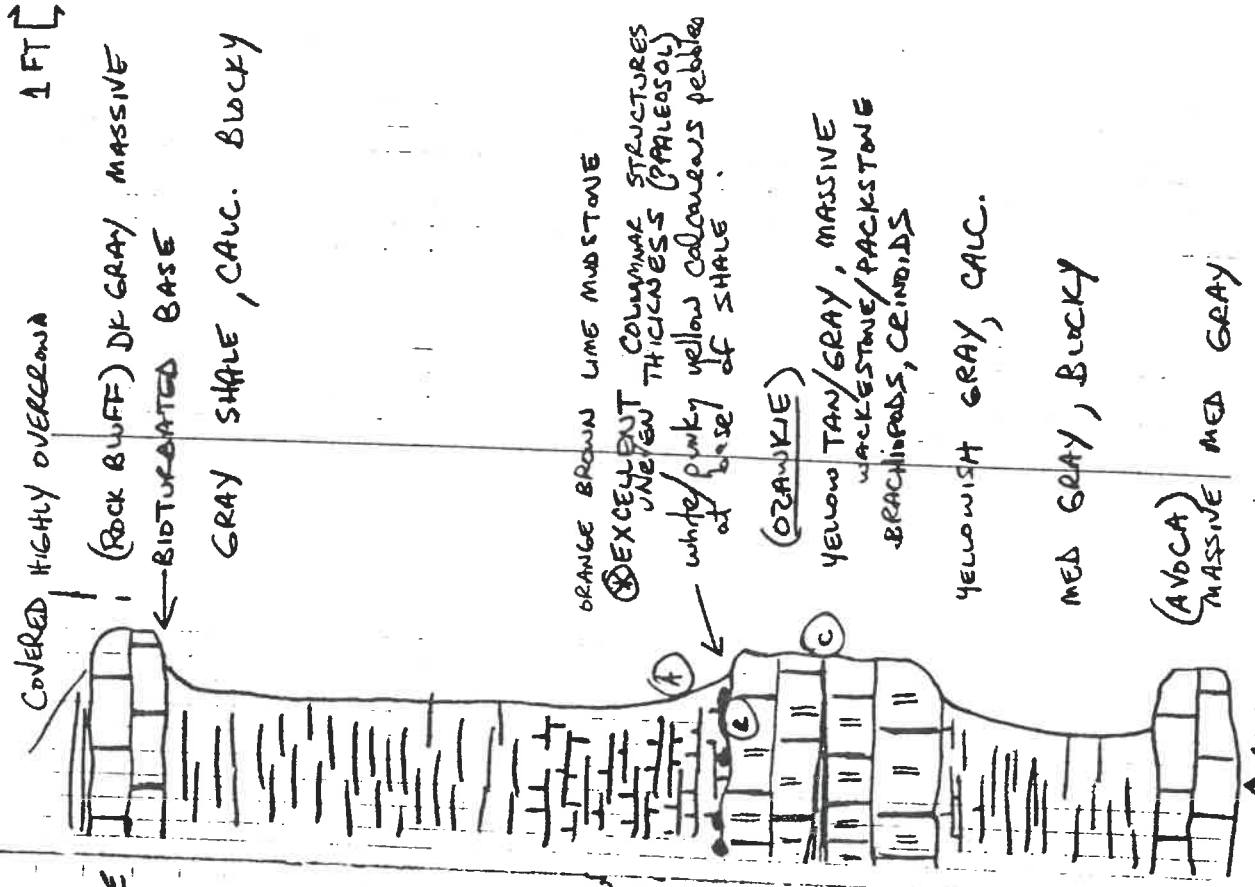 1 FT
COVERED HIGHLY OVERGROWN
(ROCK BLUFF) DK GRAY MASSIVE
BIOTURBATED BASE
GRAY SHALE, CALC. BLOCKY
ORANGE BROWN LIME MUDSTONE
* EXCELLENT COLUMNAR STRUCTURES
UNEVEN THICKNESS (PALEOSOL)
white/pinky yellow calcareous pebbles
at base of SHALE.
A
B
(OZAWKIE)
C
YELLOW TAN/GRAY, MASSIVE
WACKESTONE/PACKSTONE
BRACHIOPODS, CRINOIDS
YELLOWISH GRAY, CALC.
MED GRAY, BLOCKY
(AVOCA)
MASSIVE MED GRAY